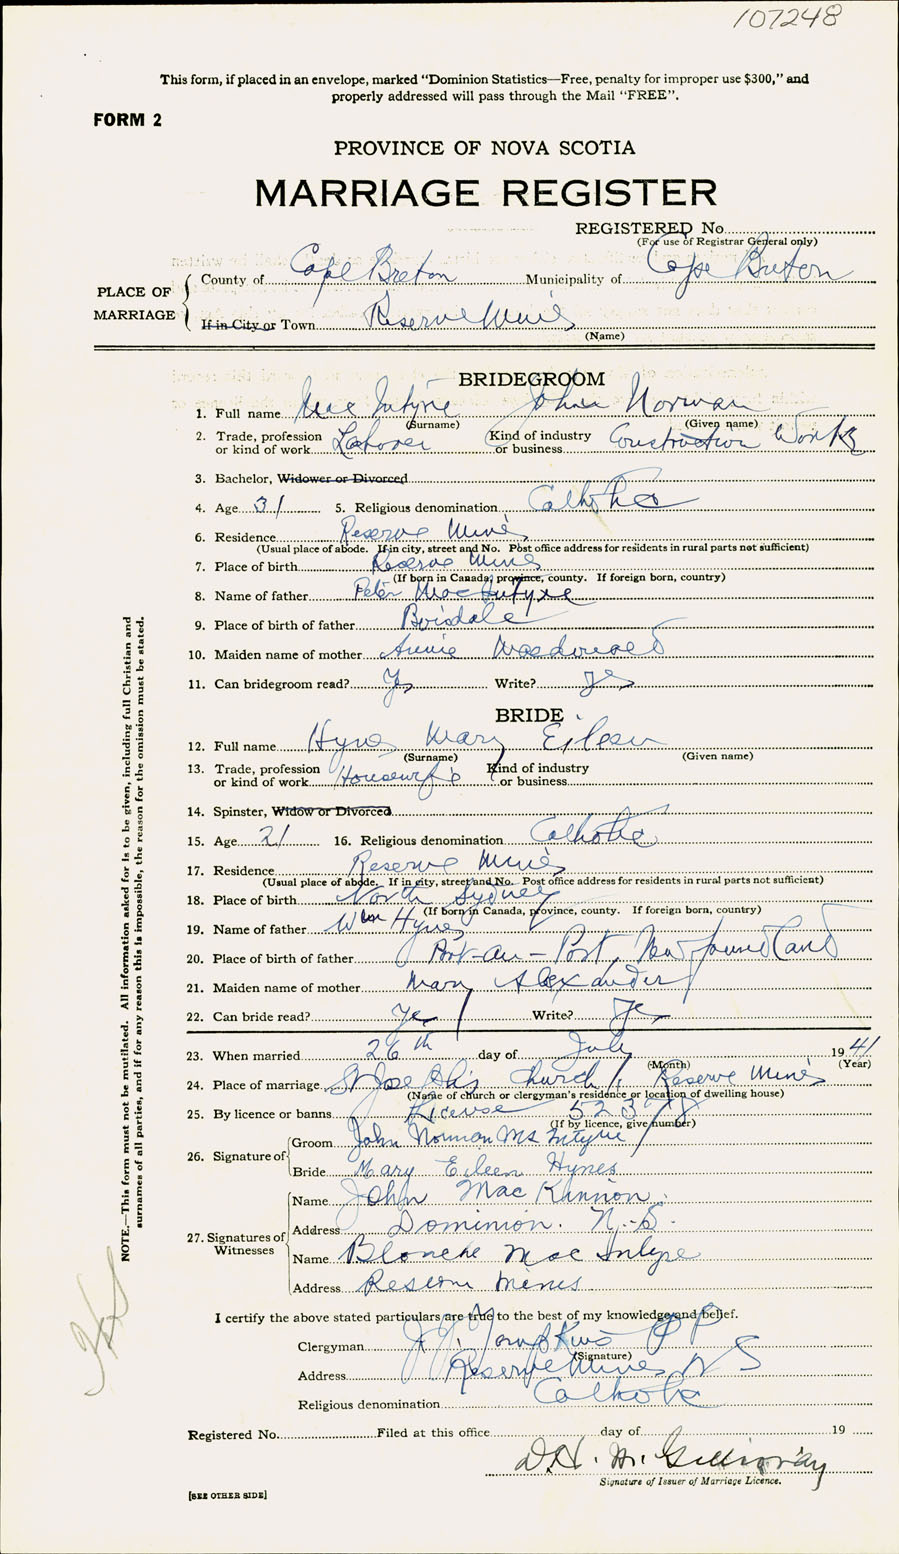 107248
This form, if placed in an envelope, marked "Dominion Statistics—Free, penalty for improper use $300," and
properly addressed will pass through the Mail "FREE".
FORM 2
PROVINCE OF NOVA SCOTIA
MARRIAGE REGISTER
REGISTERED No
(For use of Registrar General only)
PLACE OF MARRIAGE
County of Cape Breton Municipality of Cape Breton
If in City or Town Reserve Mines
(Name)
BRIDEGROOM
1. Full name MacIntyre John Norman
(Surname) (Given name)
2. Trade, profession or kind of work Laborer Kind of industry or business Construction Works
3. Bachelor, Widower or Divorced
4. Age 31 5. Religious denomination Catholic
6. Residence Reserve Mines
(Usual place of abode. If in city, street and No. Post office address for residents in rural parts not sufficient)
7. Place of birth Reserve Mines
(If born in Canada, province, county. If foreign born, country)
8. Name of father Peter MacIntyre
9. Place of birth of father Boisdale
10. Maiden name of mother Annie
11. Can bridegroom read? Yes Write? Yes
BRIDE
12. Full name Hynes Mary Eileen
(Surname) (Given name)
13. Trade, profession or kind of work Housewife Kind of industry or business
14. Spinster, Widow or Divorced
15. Age 21 16. Religious denomination Catholic
17. Residence Reserve Mines
(Usual place of abode. If in city, street and No. Post office address for residents in rural parts not sufficient)
18. Place of birth North Sydney
(If born in Canada, province, county. If foreign born, country)
19. Name of father Wm Hynes
20. Place of birth of father Port-au-Port, Newfoundland
21. Maiden name of mother Mary Alexander
22. Can bride read? Yes Write? Yes
23. When married 26th day of July 1941
(Month) (Year)
24. Place of marriage St Joseph's Church, Reserve Mines
(Name of church or clergyman's residence or location of dwelling house)
25. By licence or banns License 52378
(If by licence, give number)
26. Signature of
Groom John Norman McIntyre
Bride Mary Eileen Hynes
27. Signatures of Witnesses
Name John MacKinnon
Address Dominion. N.S.
Name Blanche MacIntyre
Address Reserve Mines
I certify the above stated particulars are true to the best of my knowledge and belief.
Clergyman J.J. Tompkins P P
(Signature)
Address Reserve Mines NS
Religious denomination Catholic
Registered No. Filed at this office day of 19
D.H. McGillivray
Signature of Issuer of Marriage Licence.
[SEE OTHER SIDE]
NOTE.—This form must not be mutilated. All information asked for is to be given, including full Christian and
surnames of all parties, and if for any reason this is impossible, the reason for the omission must be stated.